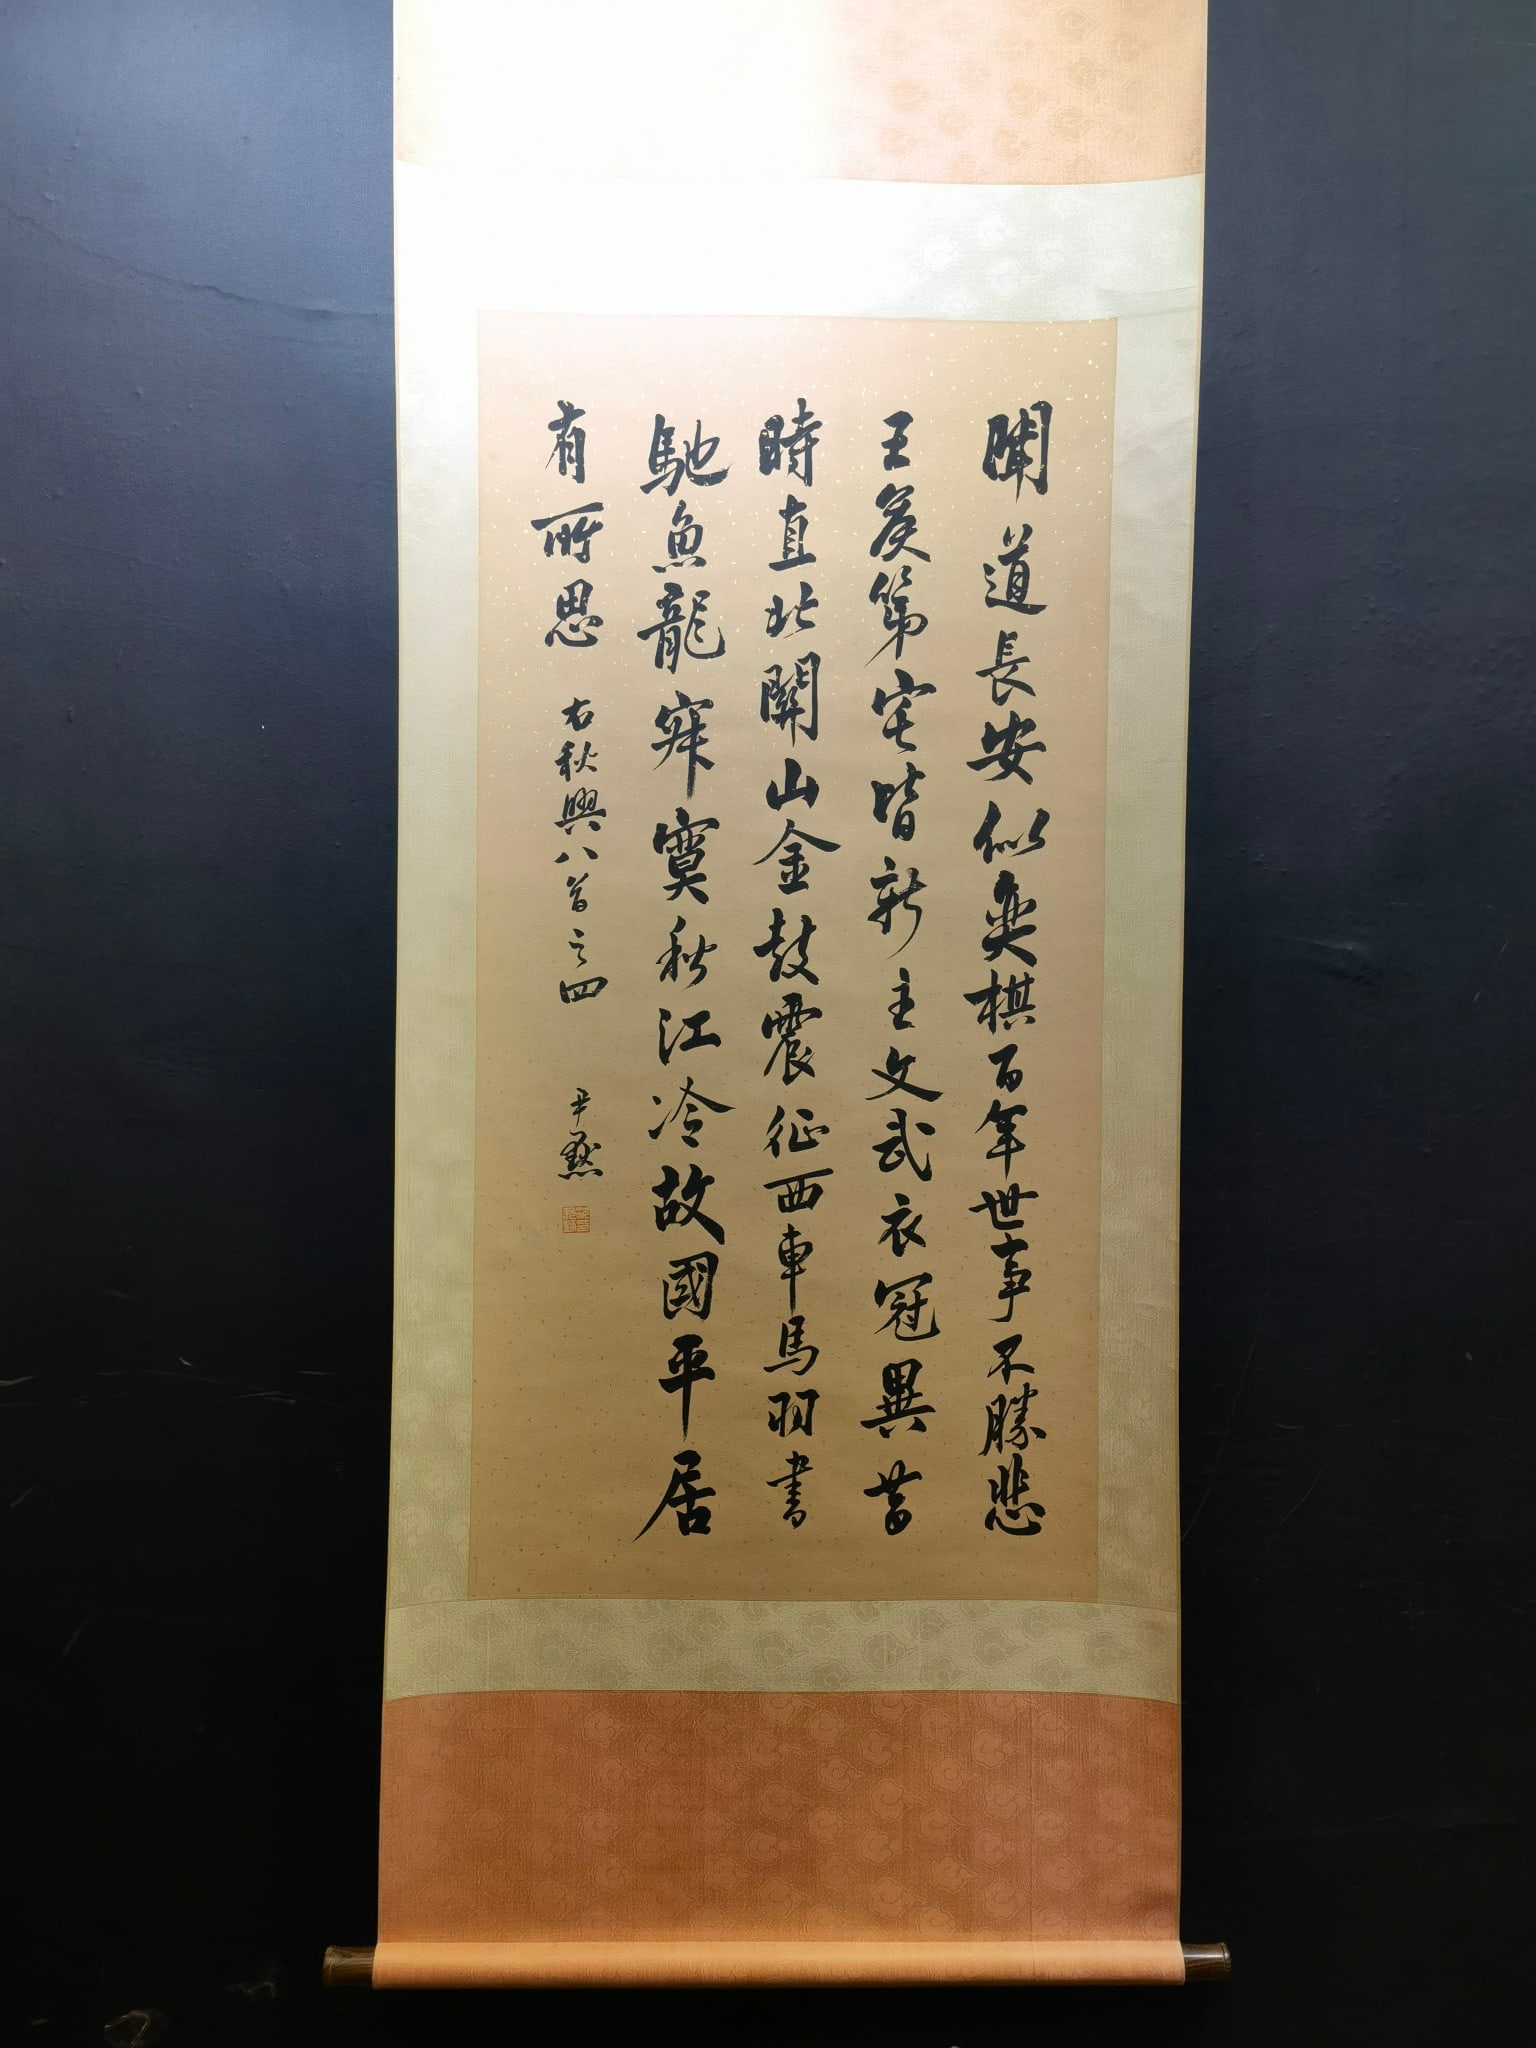 聞道長安似奕棋百年世事不勝悲
王矦第宅皆新主文武衣冠異昔
時直北關山金鼓震征西車馬羽書
馳魚龍寂寞秋江冷故國平居
有所思
右秋興八首之四
尹默